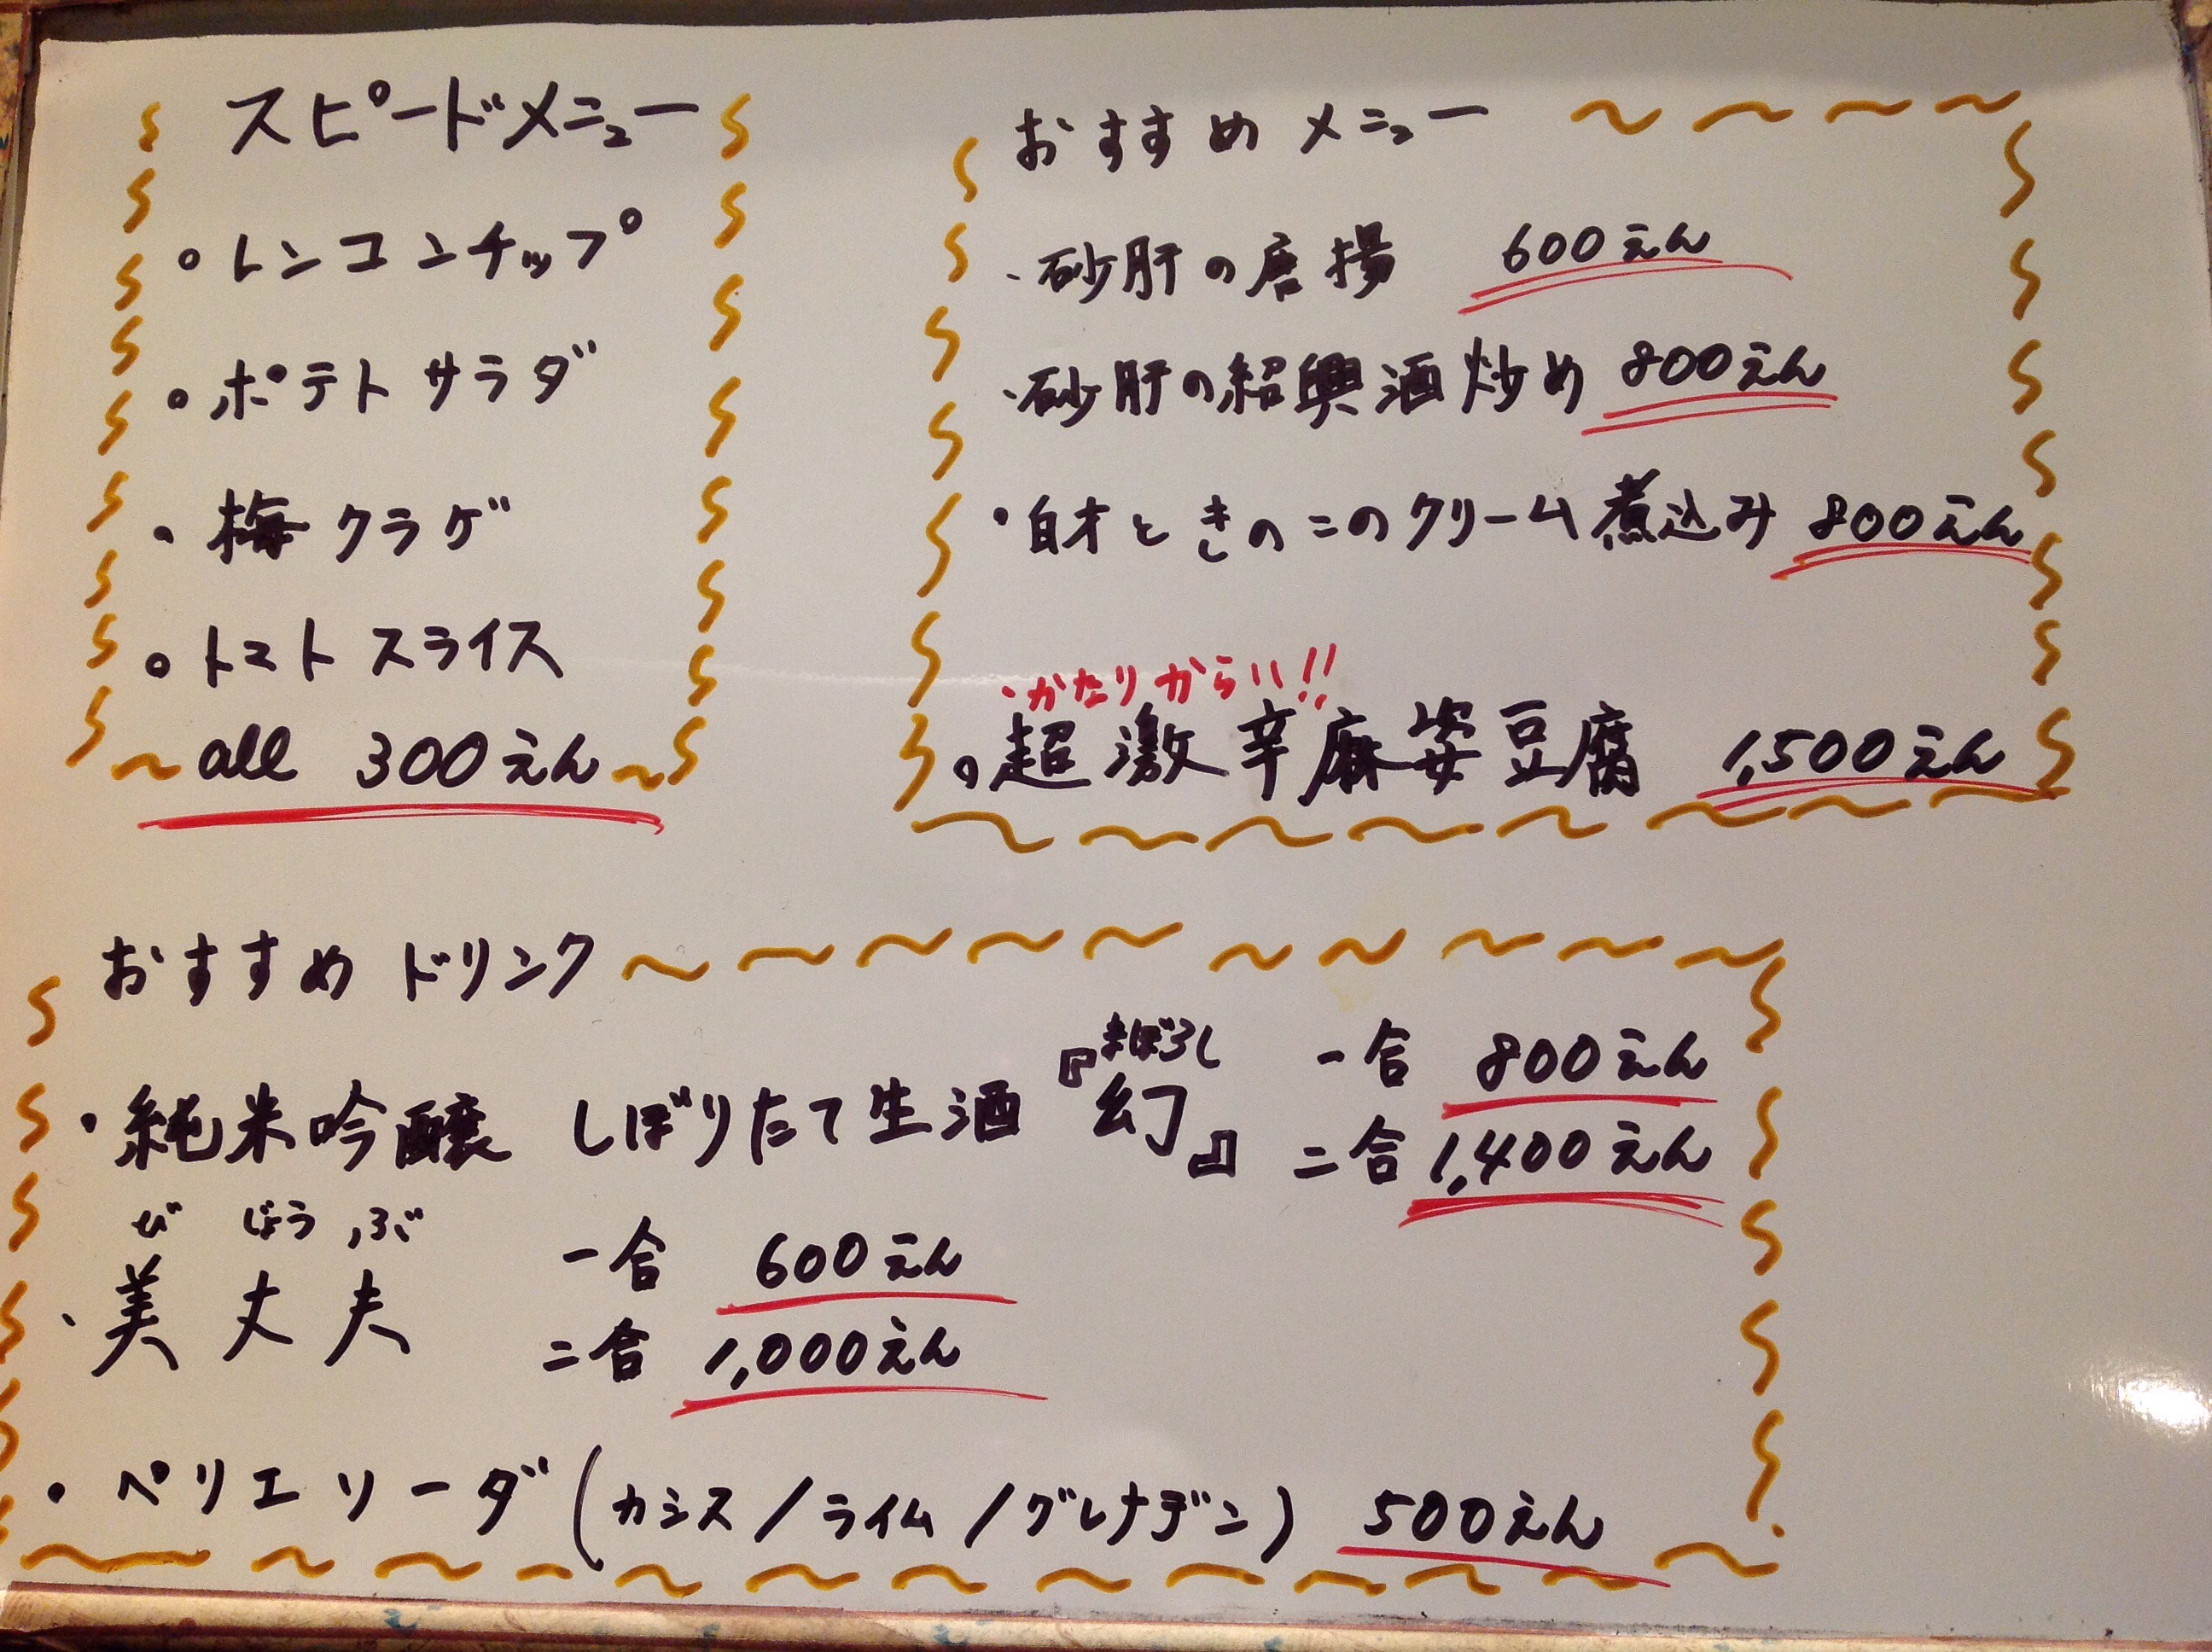 スピードメニュー
。レンコンチップ
。ポテトサラダ
・梅クラゲ
。トマトスライス
all 300えん
おすすめメニュー
・砂肝の唐揚 600えん
・砂肝の紹興酒炒め 800えん
・白才ときのこのクリーム煮込み 800えん
・かなりからい!!
。超激辛麻婆豆腐 1,500えん
おすすめドリンク
まぼろし
・純米吟醸 しぼりたて生酒『幻』 一合 800えん
二合 1,400えん
び じょう ぶ
・美丈夫 一合 600えん
二合 1,000えん
・ペリエソーダ(カシス/ライム/グレナデン) 500えん